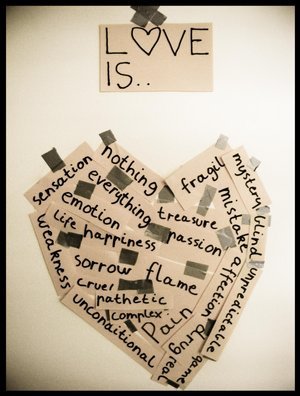 L♡VE
IS..
sensation
nothing
everything
emotion
life
happiness
weakness
sorrow
cruel
pathetic
complex
unconditional
treasure
passion
flame
Pain
fragil
mystery
mistake
affection
blind
unpredictable
drug
real
game